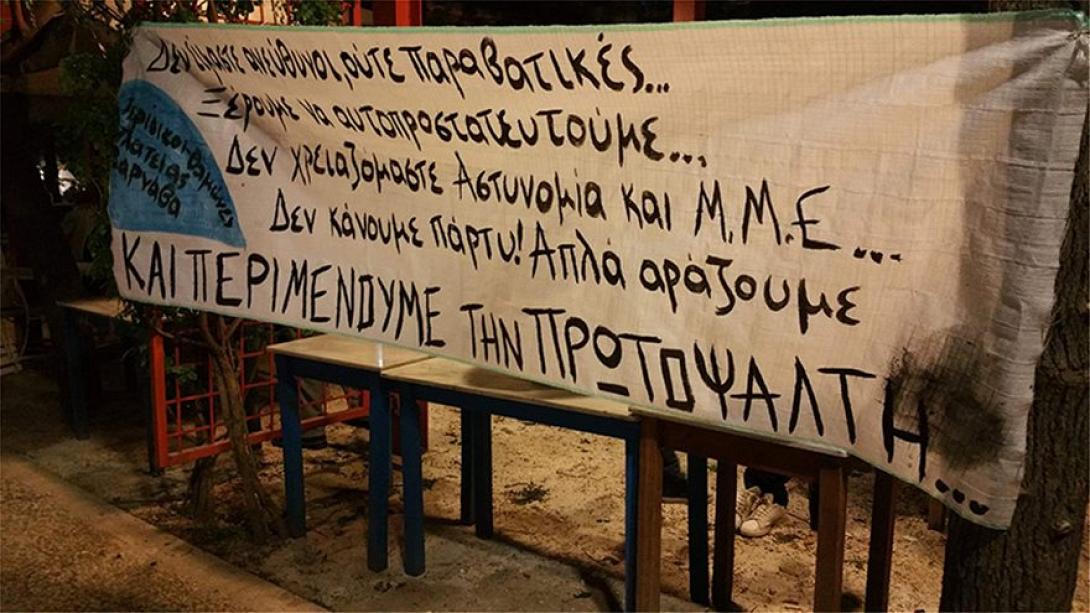 Δεν είμαστε ανεύθυνοι, ούτε παραβατικές...
Ξέρουμε να αυτοπροστατευτούμε...
Δεν χρειαζόμαστε Αστυνομία και Μ.Μ.Ε...
Δεν κάνουμε πάρτυ! Απλά αράζουμε
ΚΑΙ ΠΕΡΙΜΕΝΟΥΜΕ ΤΗΝ ΠΡΩΤΟΨΑΛΤΗ...
Πλατείας
Βαρνάβα